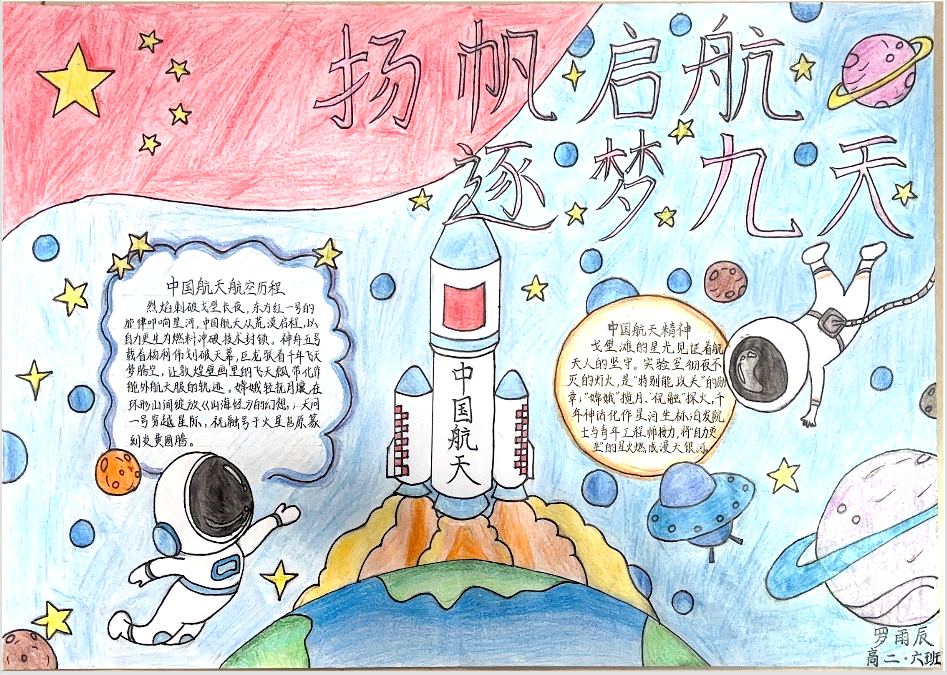 扬帆启航
逐梦九天
中国航天航空历程
烈焰刺破戈壁长夜，东方红一号的
旋律叩响星河。中国航天从荒漠启程，以
自力更生为燃料冲破技术封锁。神舟五号
载着杨利伟划破天幕，巨龙驮着千年飞天
梦腾空，让敦煌壁画里的飞天飘带化作
舱外航天服的轨迹。嫦娥轻抚月壤，在
环形山间绽放《山海经》的幻想，；天问
一号穿越星际，祝融号于火星高原篆
刻炎黄图腾。
中国航天精神
戈壁滩的星光，见证着航
天人的坚守。实验室彻夜不
灭的灯火，是“特别能攻关”的勋
章；“嫦娥”揽月、“祝融”探火，千
年神话化作星河坐标；白发院
士与青年工程师接力，将“自力更
生”的星火燃成漫天银河
中国航天
罗雨辰
高二·六班